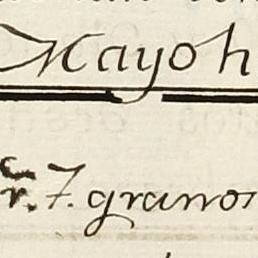 Mayo h
r. 7. granos